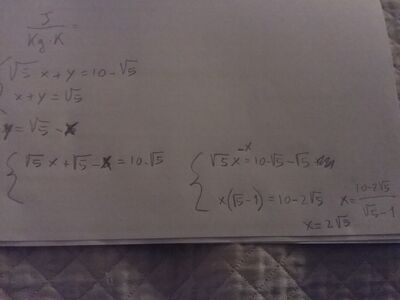 J / Kg · K =
√5 x + y = 10 - √5
x + y = √5
y = √5 - x
√5 x + √5 - x = 10 - √5
√5 x - x = 10 - √5 - √5
x(√5 - 1) = 10 - 2√5
x = (10 - 2√5) / (√5 - 1)
x = 2√5